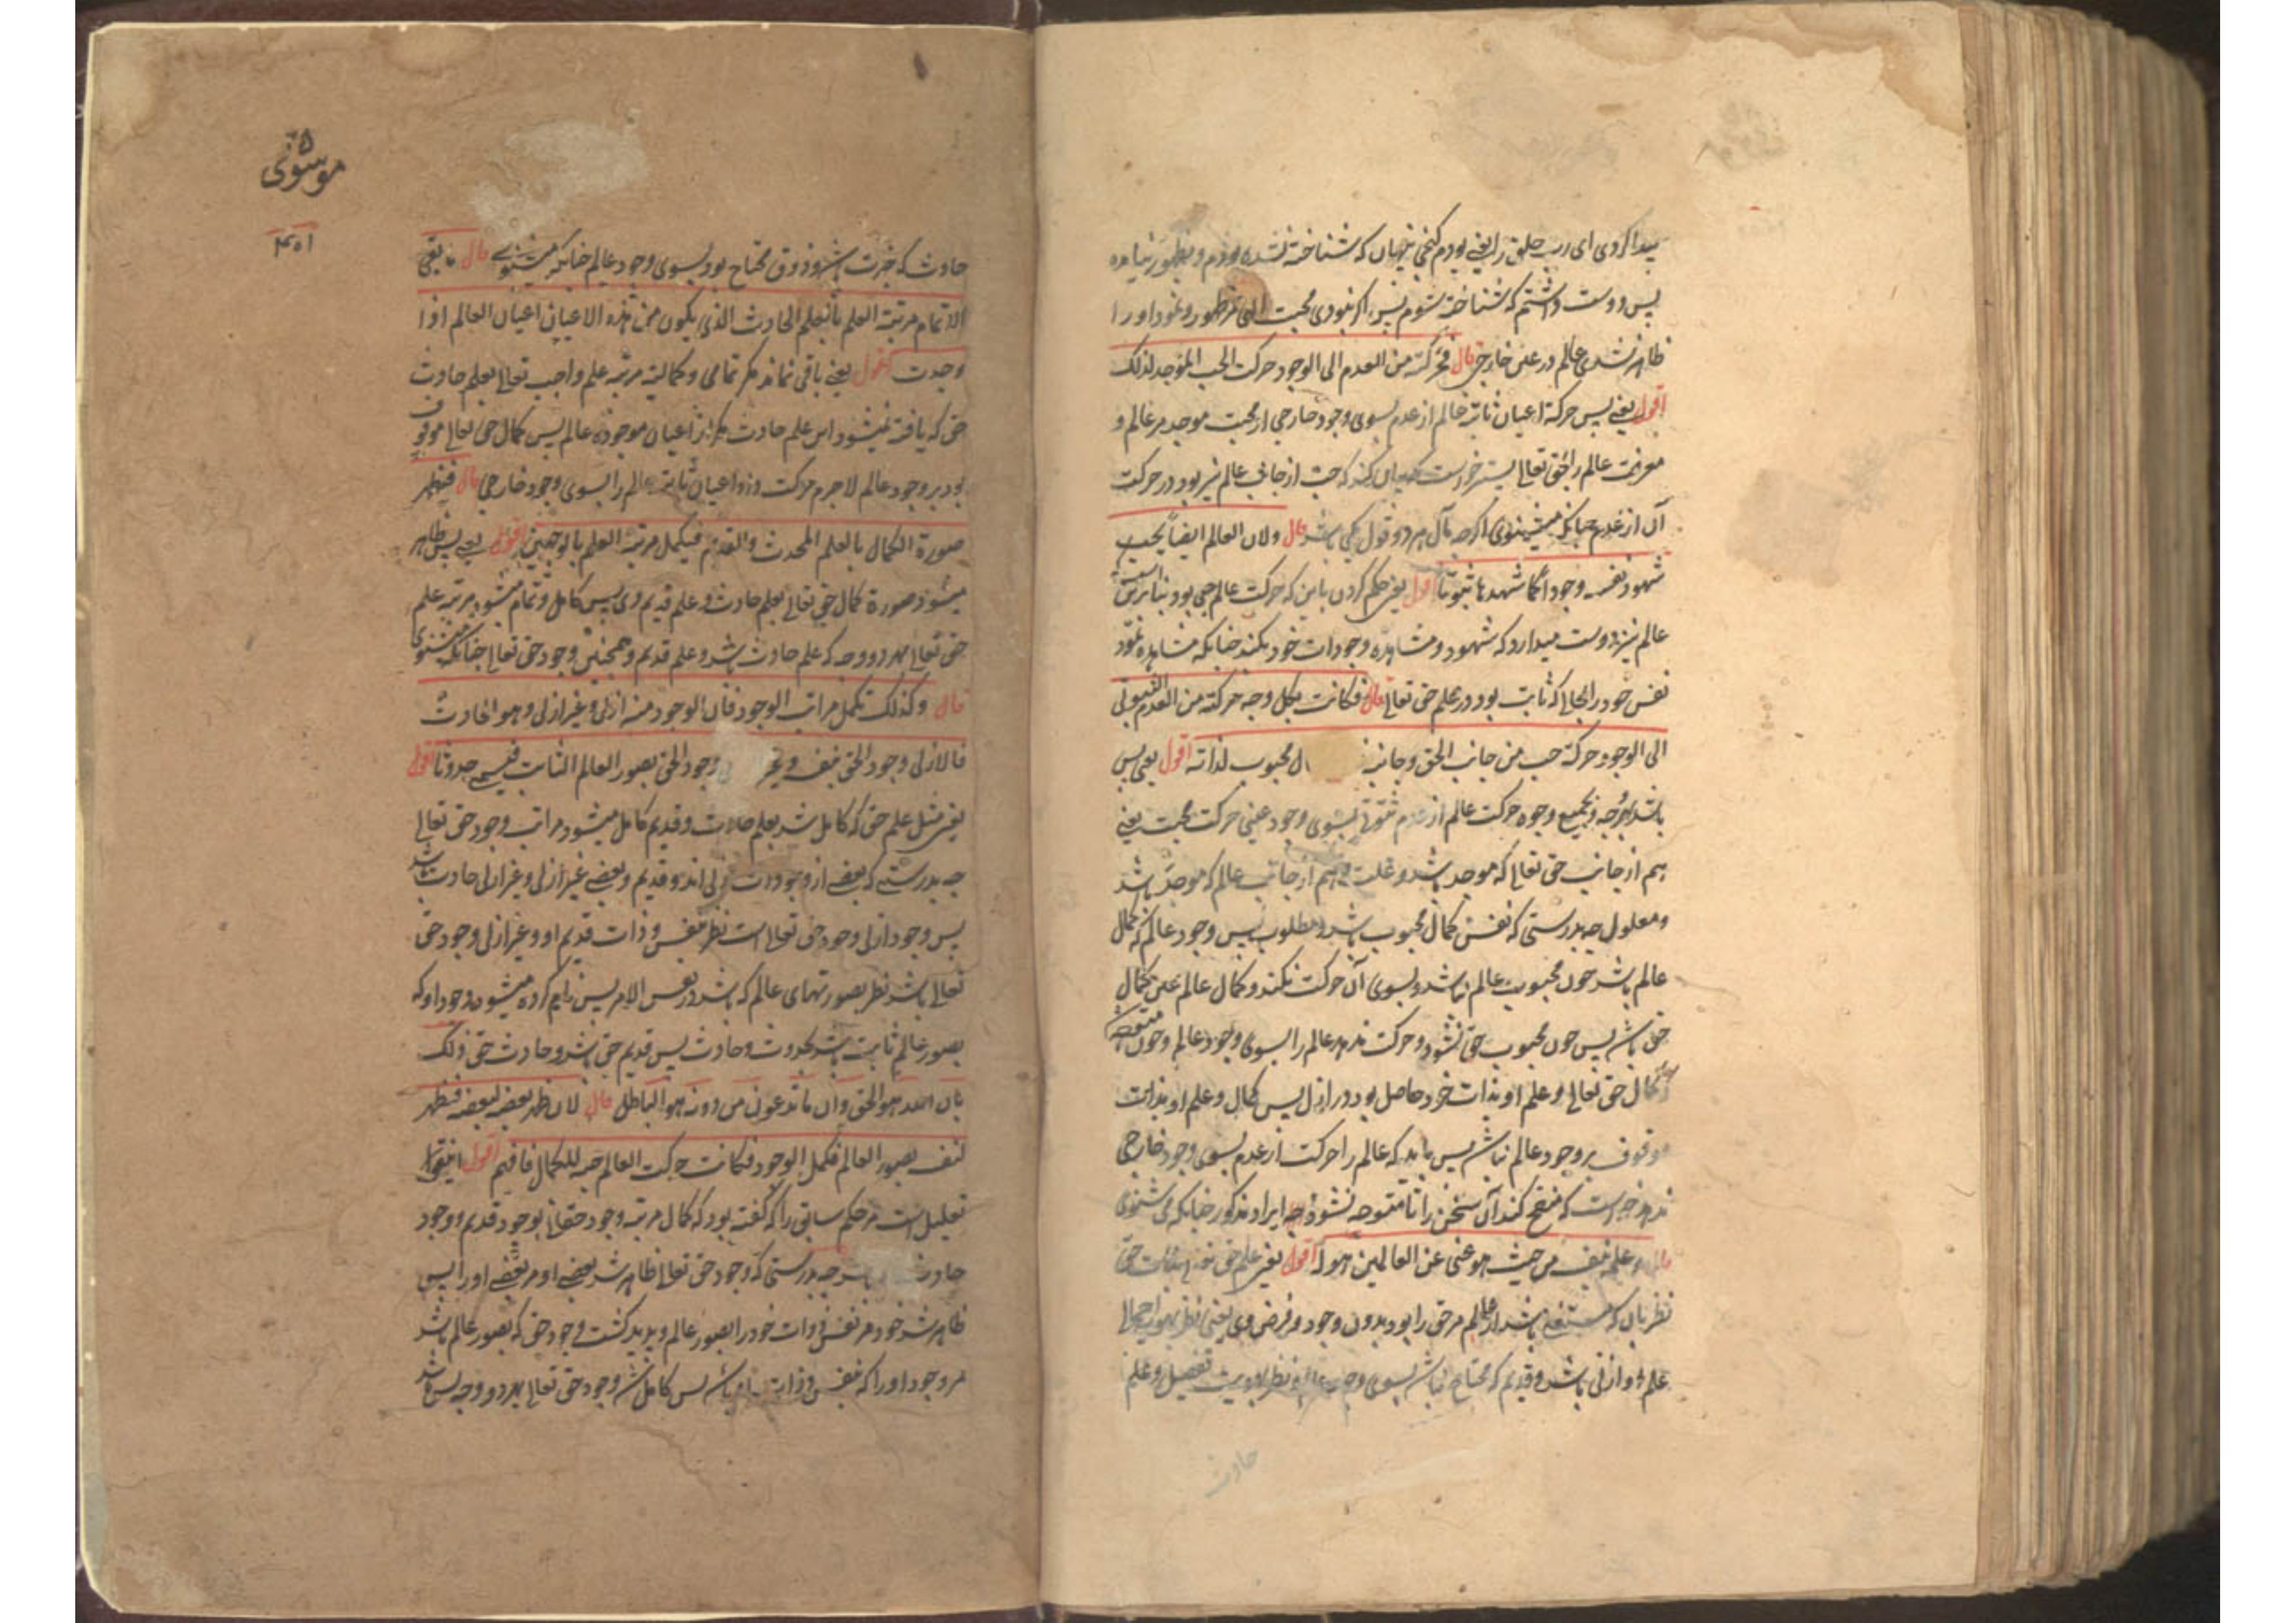 پیدا کردی ای رب خلق را یعنی بودم کنجی پنهان که شناخته نشده بودم و بظهور نیامده
پس دوست داشتم که شناخته شوم پس اگر نبودی محبت الهی مر ظهور و نمود او را
ظاهر نشدی عالم در عین خارجی قال فحرکته من العدم الی الوجود حرکت الحب الموجد لذلک
اقول یعنی پس حرکة اعیان ثابته عالم از عدم بسوی وجود خارجی از محبت موجد مر عالم و
معرفت عالم را حق تعالی کند که حب از جانب عالم نیز بود در حرکت
آن از عدم چنانکه میشنوی اگرچه مآل هر دو قول یکی باشد قال ولان العالم ایضا یحب
شهود نفسه وجودا کما شهدها ثبوتا اقول یعنی حکم کردن باین که حرکت عالم حبی بود بنابرین است
عالم نیز دوست میدارد که شهود و مشاهده وجودات خود بکند چنانکه مشاهده نمود
نفس خود را بحالی که ثابت بود در علم حق تعالی قال فکانت بکل وجه حرکته من العدم الثبوتی
الی الوجود حرکة حب من جانب الحق و جانبه ل محبوب لذاته اقول یعنی پس
باشد بهر وجه و بجمیع وجوه حرکت عالم از عدم ثبوتی بسوی وجود عینی حرکت محبت یعنی
هم از جانب حق تعالی که موجد باشد و علت و هم از جانب عالم که موجد باشد
و معلول چه بدرستی که نفس کمال محبوب باشد و مطلوب پس وجود عالم که کمال
عالم باشد چون محبوب عالم نباشد و بسوی آن حرکت نکند و کمال عالم عین کمال
حق باشد پس چون محبوب حق نشود و حرکت ندهد عالم را بسوی وجود عالم و چون متوجه شد
که کمال حق تعالی و علم او بذات خود حاصل بود در ازل پس کمال و علم او بذات
موقوف بر وجود عالم نباشد پس باید که عالم را حرکت از عدم بسوی وجود خارجی
ندهد خواست که منقح کند آن سخن را تا متوجه نشود چه ایراد مذکور چنانکه می شنوی
قال و علمه بنفسه من حیث هو غنی عن العالمین هو له اقول یعنی علم حق تعالی بذات حق
نظر بآن که مستغنی باشد از عالم مر حق را بود بدون وجود و فرض وی یعنی نظر بهویت اجمالی
علم او ازلی باشد و قدیم که محتاج نباشد بسوی وجود عالم و نظر بهویت تفصیل و علم
حادث
موسوی
۴۵۱
حادث که خبرت باشد و ذوق محتاج بود بسوی وجود عالم چنانکه میشنوی قال ما بقی
الا تمام مرتبة العلم بالعلم الحادث الذی یکون من هذه الاعیان اعیان العالم اذا
وجدت اقول یعنی باقی نماند مگر تمامی و کمالیة مرتبه علم واجب تعالی بعلم حادث
حق که یافته نمیشود این علم حادث مگر از اعیان موجوده عالم پس کمال حق تعالی موقوف
بود بر وجود عالم لاجرم حرکت داد اعیان ثابته عالم را بسوی وجود خارجی قال فیظهر
صورة الکمال بالعلم المحدث والقدیم فیکمل مرتبة العلم بالوجهین اقول یعنی پس ظاهر
میشود صورة کمال حق تعالی بعلم حادث و علم قدیم وی پس کامل و تمام میشود مرتبه علم
حق تعالی بهر دو وجه که علم حادث باشد و علم قدیم و همچنین وجود حق تعالی چنانکه میشنوی
قال وکذلک تکمل مراتب الوجود فان الوجود منه ازلی و غیر ازلی و هو الحادث
فالازلی وجود الحق لنفسه و غیر لی وجود الحق بصور العالم الثابت فیسمی حدوثا اقول
یعنی مثل علم حق که کامل شد بعلم حادث و قدیم کامل میشود مراتب وجود حق تعالی
چه بدرستی که بعضی از وجودات ازلی اند و قدیم و بعضی غیر ازلی و غیر ازلی حادث باشد
پس وجود ازلی وجود حق تعالی است نظر بنفس و ذات قدیم او و غیر ازلی وجود حق
تعالی باشد نظر بصورتهای عالم که باشد در نفس الامر پس نام کرده میشود وجود او که
بصور عالم ثابت باشد بحدوث و حادث پس قدیم حق باشد و حادث حق ذلک
بان الله هو الحق وان ما تدعون من دونه هو الباطل قال لان ظهر بعضه لبعضه فظهر
لنفسه بصور العالم فکمل الوجود فکانت حرکت العالم حبیه للکمال فافهم اقول این قول
تعلیل است مر حکم سابق را که گفته بود که کمال مرتبه وجود حقانی بوجود قدیم و وجود
حادث چه بدرستی که وجود حق تعالی ظاهر شد بعضی او مر بعضی او را پس
ظاهر شد خود مر نفس و ذات خود را بصور عالم و پدید گشت وجود حق که بصور عالم باشد
مر وجود او را که بنفس و ذات باشد پس کامل شد وجود حق تعالی بهر دو وجه پس باشد